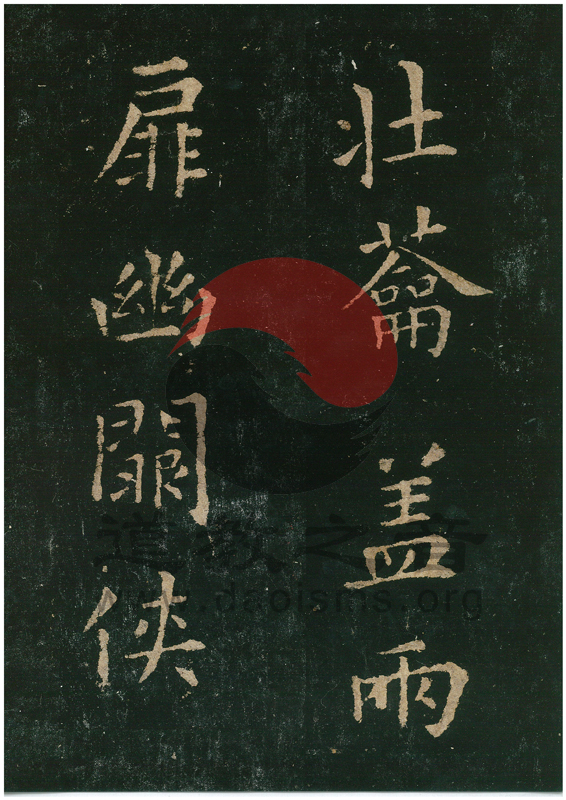 壯蘥盖兩
扉幽闕侠
道教之音
www.daoisms.org